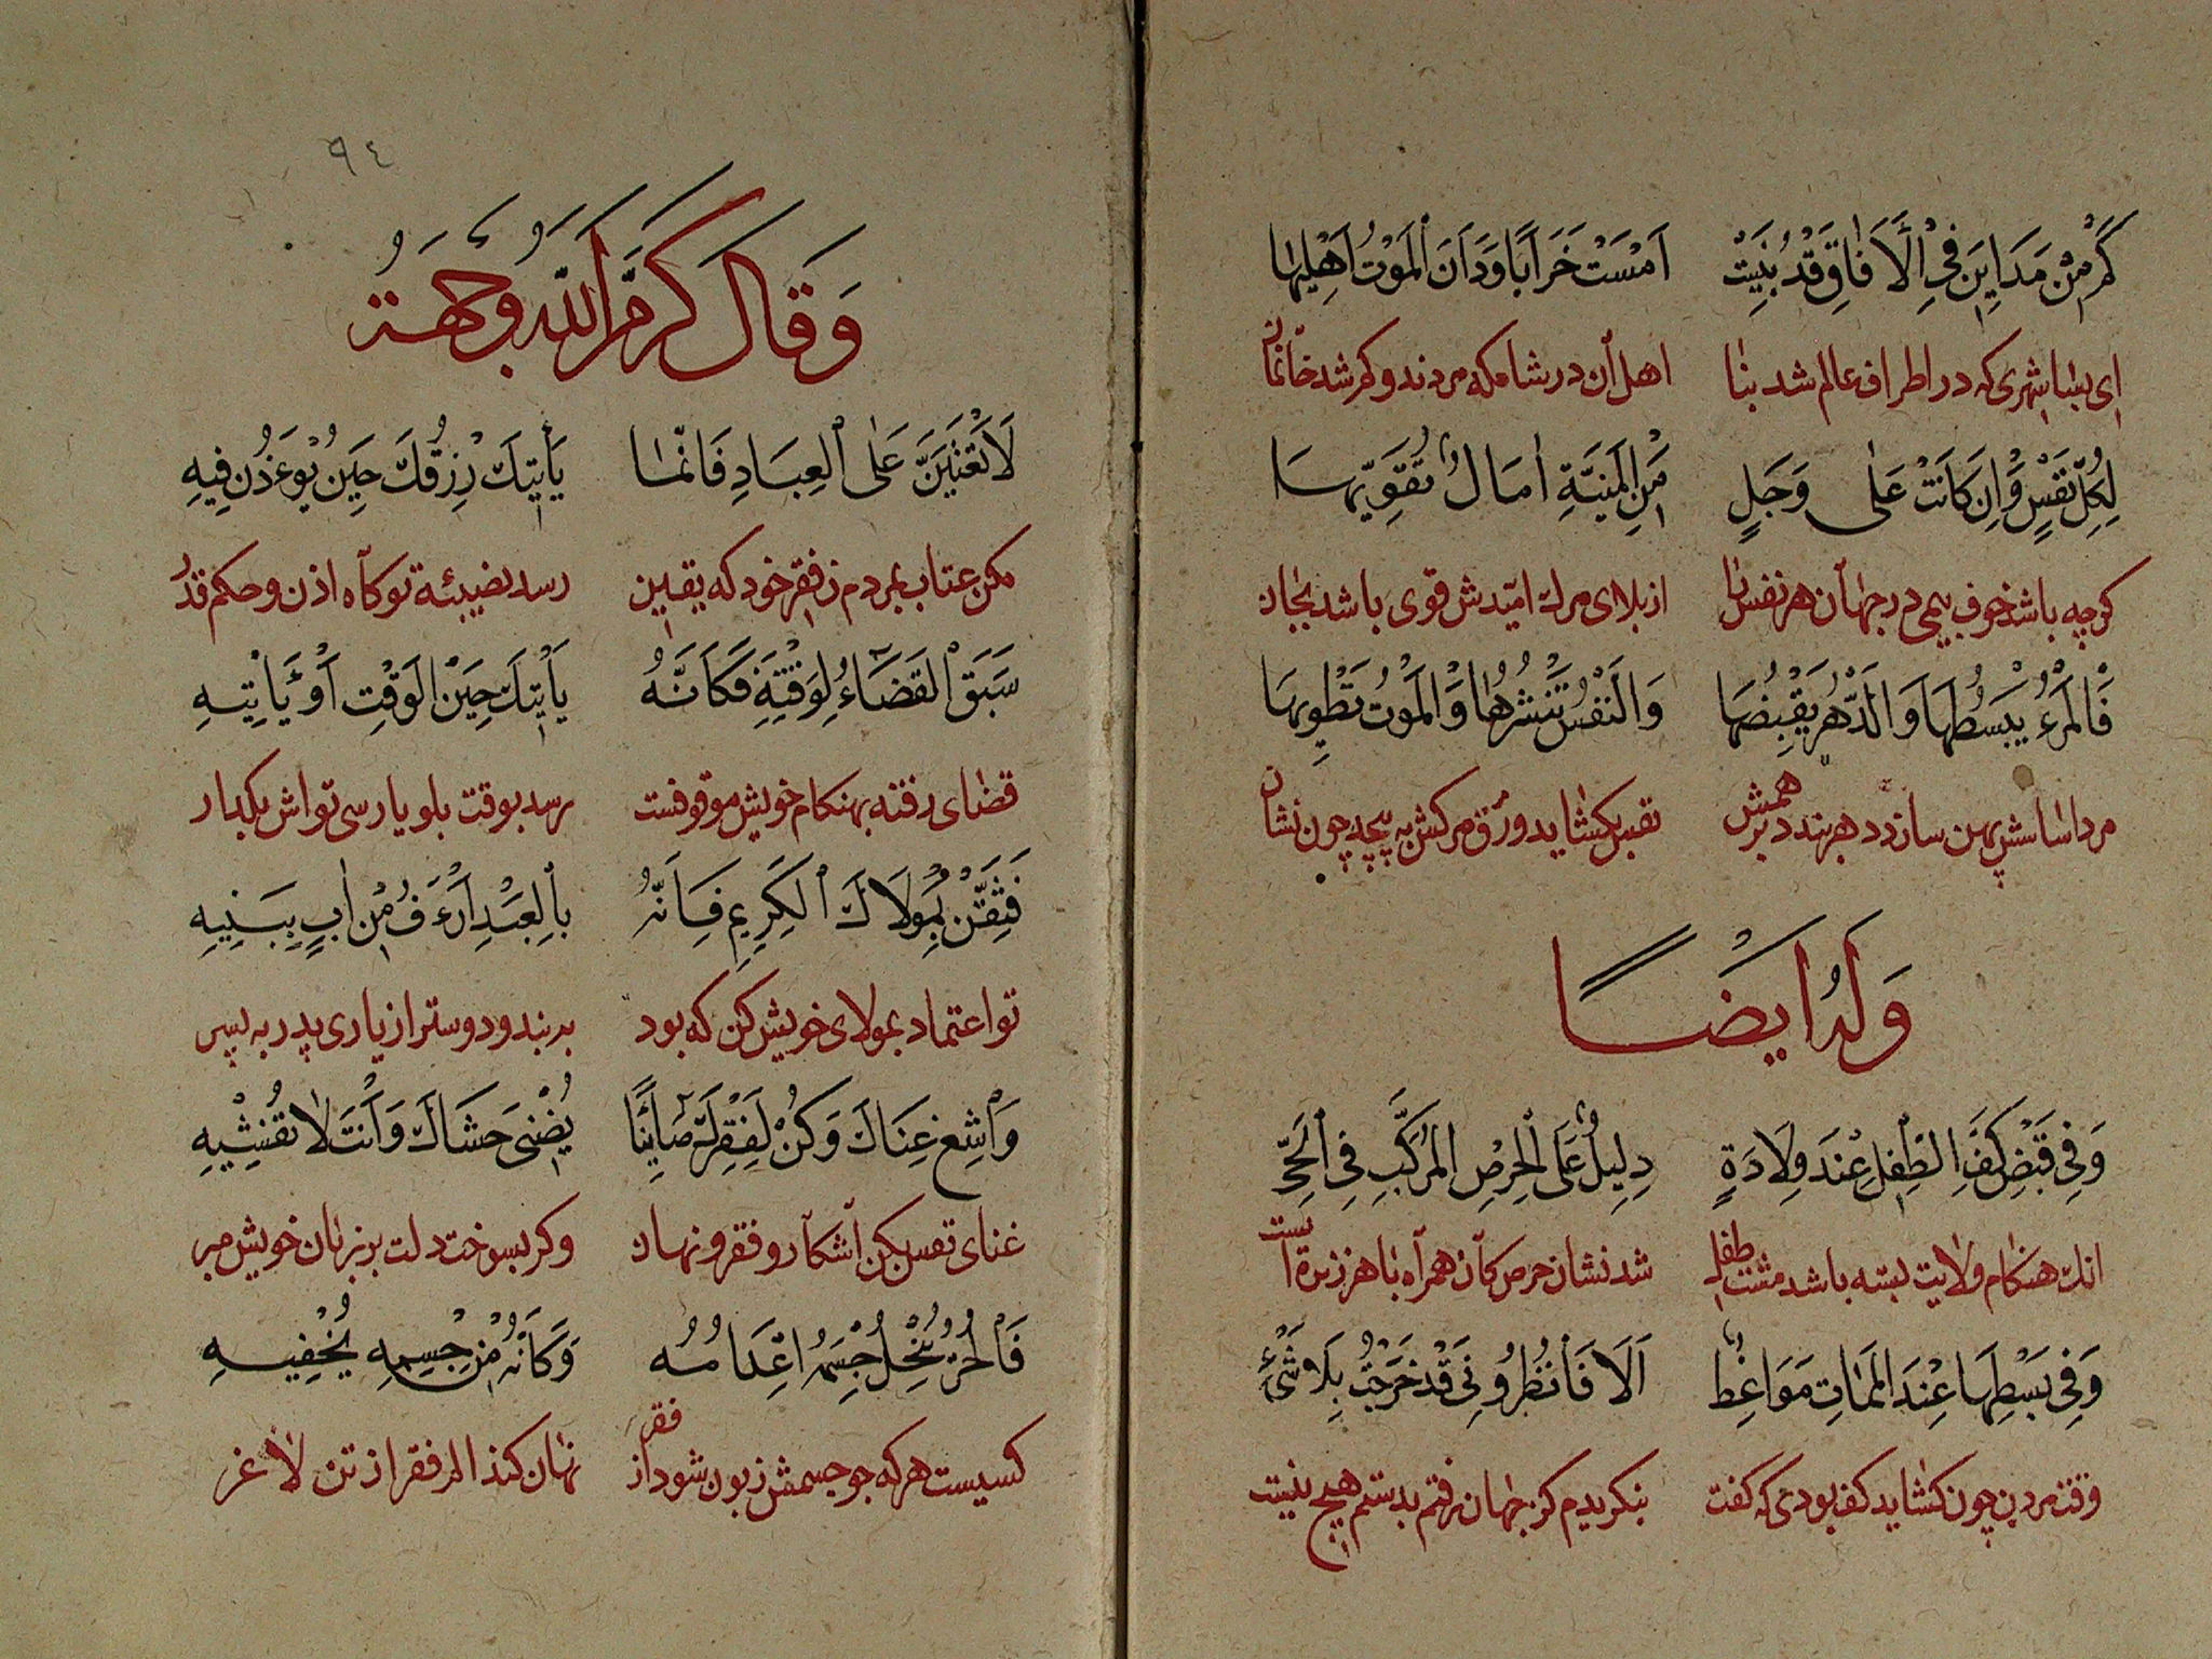 كَمْ مِنْ مَدَايِنَ فِي الْاَفَاقِ قَدْ بُنِيَتْ اَمْسَتْ خَرَابًا وَدَانَ الْمَوْتُ اَهْلِيهَا
ای بسا شهری که در اطراف عالم شد بنا اهل آن در شامکه مردند و کم شد خانمان
لِكُلِّ نَفْسٍ وَاِنْ كَانَتْ عَلٰى وَجَلٍ مِنَ الْمَنِيَّةِ اٰمَالٌ تُقَوِّيهَا
کرچه باشد خوف بیمی در جهان هر نفس را از بلای مرك امیدش قوی باشد بجان
فَالْمَرْءُ يَبْسُطُهَا وَالدَّهْرُ يَقْبِضُهَا وَالنَّفْسُ تَنْشُرُهَا وَالْمَوْتُ تَطْوِيهَا
مرد اساسش پهن سازد دهر بندد همش نفس بکشاید ورق مرکش به پیچد چون نشان
وَلَهُ اَيْضًا
وَفِي قَبْضِ كَفِّ الطِّفْلِ عِنْدَ وِلَادَةٍ دَلِيلٌ عَلَى الْحِرْصِ الْمُرَكَّبِ فِي الْحَيِّ
انك هنكام ولایت بسته باشد مشت طفل شد نشان حرص کان همراه با هر زنده است
وَفِي بَسْطِهَا عِنْدَ الْمَمَاتِ مَوَاعِظٌ اَلَا فَانْظُرُونِي قَدْ خَرَجْتُ بِلَا شَيْءٍ
وقت مردن چون کشاید کف بودی که گفت بنکریدم کز جهان رفتم بدستم هیچ نیست
٩٤
وَقَالَ كَرَّمَ اللّٰهُ وَجْهَهُ
لَا تَعْتِبَنَّ عَلَى الْعِبَادِ فَاِنَّمَا يَأْتِيكَ رِزْقُكَ حِينَ يُؤْذَنُ فِيهِ
مکن عتاب بمردم ز فقر خود که یقین رسد نصیبئه توکاه اذن و حکم قدر
سَبَقَ الْقَضَاءُ لِوَقْتِهِ فَكَاَنَّهُ يَأْتِيكَ حِينَ الْوَقْتِ اَوْ تَأْتِيهِ
قضای رفته بهنکام خویش موقوفست رسد بوقت بلو یا رسی تواش بکدار
فَثِقَنْ بِمَوْلَاكَ الْكَرِيمِ فَاِنَّهُ بِالْعَبْدِ اَرْءَفُ مِنْ اَبٍ بِبَنِيهِ
تو اعتماد بمولای خویش کن که بود به بنده دوستر از یاری پدر به پسر
وَاَشِعْ غِنَاكَ وَكُنْ لِفَقْرِكَ صَايِنًا يُضْنِي حَشَاكَ وَاَنْتَ لَا تُفْشِيهِ
غنای نفس بکن آشکار و فقر و نهان وکر بسوخت دلت بر زبان خویش مبر
فَالْحُرُّ يُنْحِلُ جِسْمَهُ اِعْدَامُهُ وَكَاَنَّهُ مِنْ جِسْمِهِ يُخْفِيهِ
کسیست هرکه جو جسمش زبون شود از فقر نهان کند الم فقر از تن لاغر